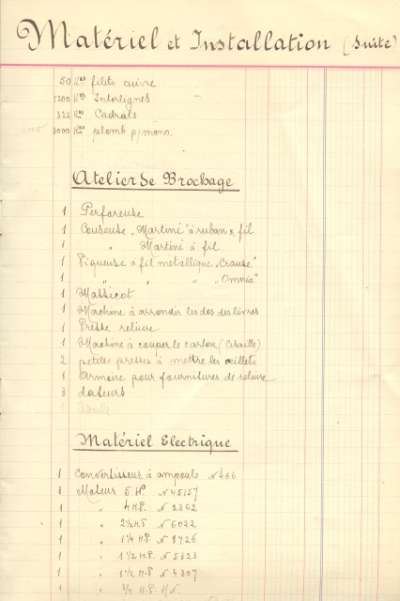 Matériel et Installation (Suite)
50 Kos filets cuivre
1200 Kos Interlignes
322 Kos Cadrats
3000 Kos plomb p/mono.
Atelier de Brochage
1 Perforeuse
1 Couseuse "Martini" à ruban & fil
1 " Martini à fil
1 Piqueuse à fil métallique "Crause"
1 " " " " "Omnia"
1 Massicot
1 Machine à arrondir les dos des livres
1 Presse reliure
1 Machine à couper le carton (Cisaille)
2 petites presses à mettre les œillets
1 Armoire pour fournitures de reliure
3 dateurs
1
Matériel Electrique
1 Convertisseur à ampoule N° 466
1 Moteur 5 HP. N° 45157
1 " 4 H.P. N° 2302
1 " 2½ HP N° 6022
1 " 1¼ HP N° 9726
1 " 1½ H.P. N° 5323
1 " 1½ H.P N° 4307
1 " ½ H.P.